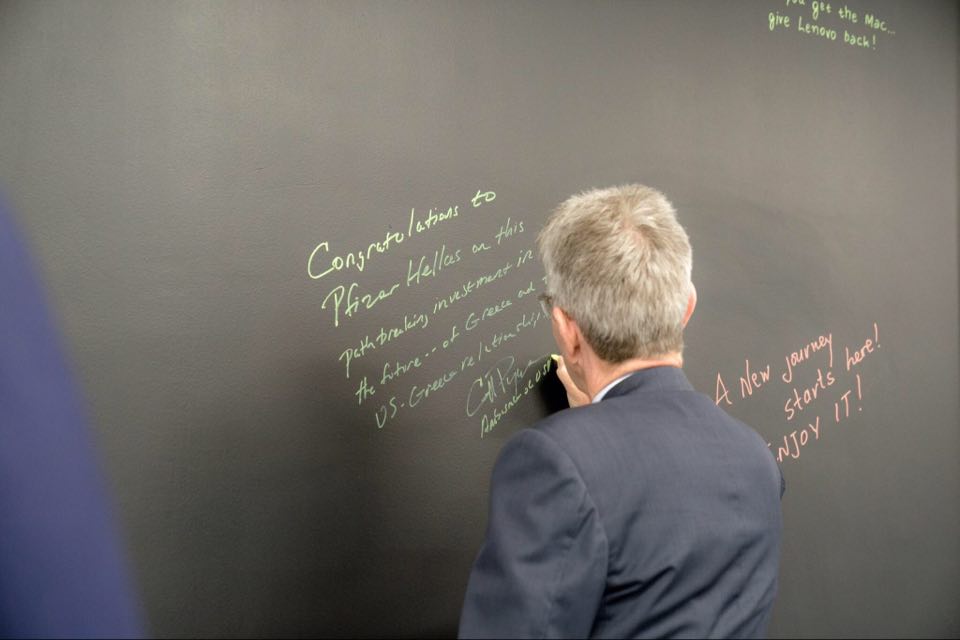 you get the Mac...
give Lenovo back!
Congratolations to
Pfizer Hellas on this
pathbreaking investment in
the future -- of Greece and
US-Greece relationship.
A New journey
starts here!
ENJOY IT!